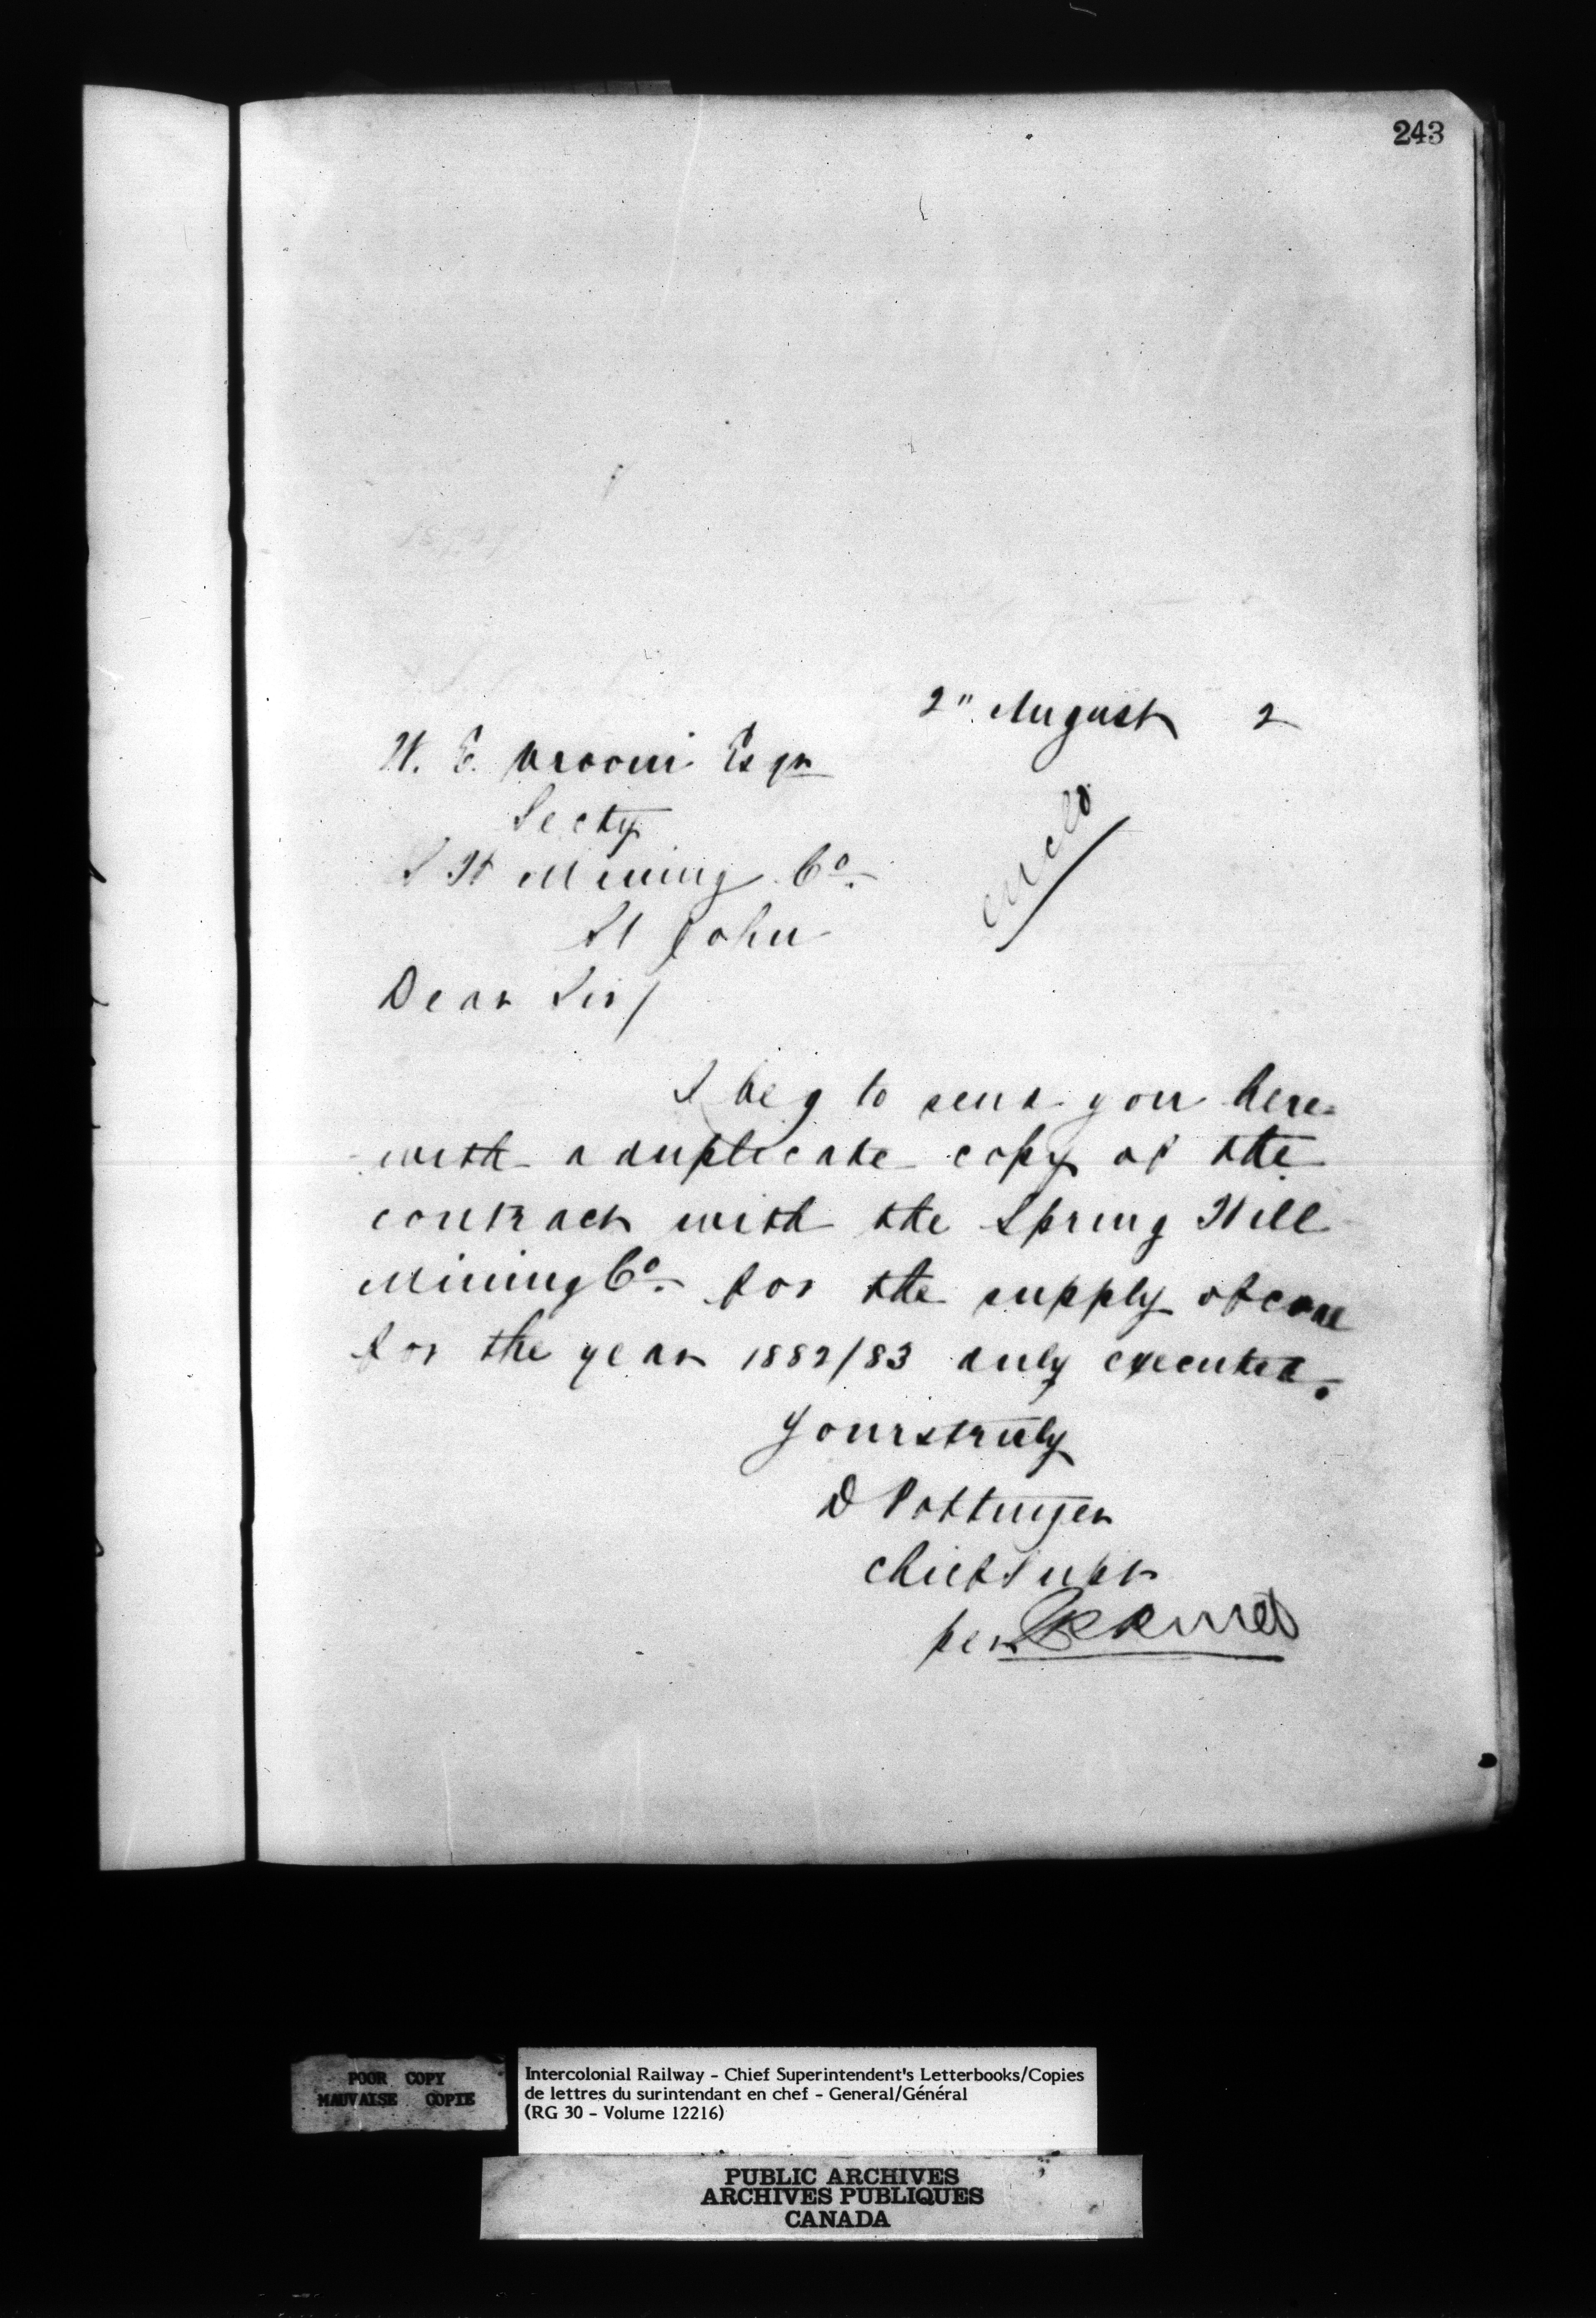 243
2" August 2
W. E. Vroom Esqr
Secty
S H Mining Co.
St John
encld
Dear Sir/
I beg to send you here-
with a duplicate copy of the
contract with the Spring Hill
Mining Co. for the supply of coal
for the year 1882/83 duly executed.
Yours truly
D Pottinger
Chief Supt
per
POOR COPY
MAUVAISE COPIE
Intercolonial Railway - Chief Superintendent's Letterbooks/Copies
de lettres du surintendant en chef - General/Général
(RG 30 - Volume 12216)
PUBLIC ARCHIVES
ARCHIVES PUBLIQUES
CANADA